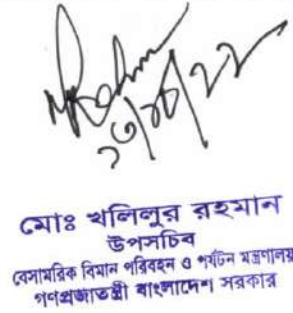 MRahman
২৩/০৮/২২
মোঃ খলিলুর রহমান
উপসচিব
বেসামরিক বিমান পরিবহন ও পর্যটন মন্ত্রণালয়
গণপ্রজাতন্ত্রী বাংলাদেশ সরকার